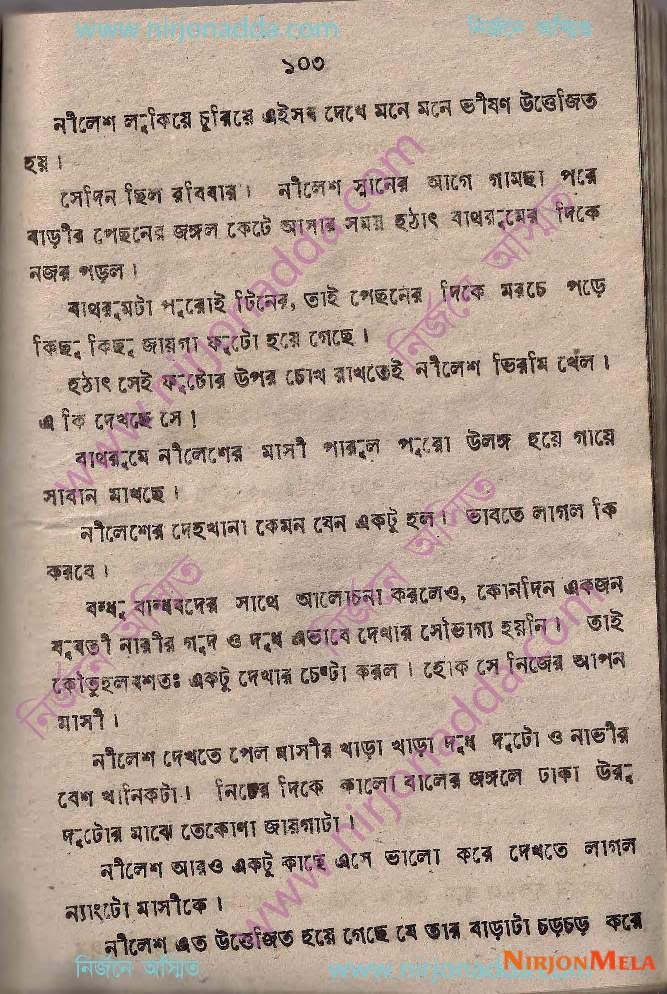 www.nirjonadda.com নির্জনে অস্মিত
১০৩
নীলেশ লুকিয়ে চুরিয়ে এইসব দেখে মনে মনে ভীষণ উত্তেজিত
হয়।
সেদিন ছিল রবিবার। নীলেশ স্নানের আগে গামছা পরে
বাড়ীর পেছনের জঙ্গল কেটে আসার সময় হঠাৎ বাথরুমের দিকে
নজর পড়ল।
বাথরুমটা পুরোই টিনের, তাই পেছনের দিকে মরচে পড়ে
কিছু কিছু জায়গা ফুটো হয়ে গেছে।
হঠাৎ সেই ফুটোর উপর চোখ রাখতেই নীলেশ ভিরমি খেল।
এ কি দেখছে সে!
বাথরুমে নীলেশের মাসী পারুল পুরো উলঙ্গ হয়ে গায়ে
সাবান মাখছে।
নীলেশের দেহখানা কেমন যেন একটু হল। ভাবতে লাগল কি
করবে।
বন্ধু বান্ধবদের সাথে আলোচনা করলেও, কোনদিন একজন
যুবতী নারীর গুদ ও দুধ এভাবে দেখার সৌভাগ্য হয়নি। তাই
কৌতুহলবশতঃ একটু দেখার চেষ্টা করল। হোক সে নিজের আপন
মাসী।
নীলেশ দেখতে পেল মাসীর খাড়া খাড়া দুধ দুটো ও নাভীর
বেশ খানিকটা। নিচের দিকে কালো বালের জঙ্গলে ঢাকা উরু
দুটোর মাঝে তেকোণা জায়গাটা।
নীলেশ আরও একটু কাছে এসে ভালো করে দেখতে লাগল
ন্যাংটো মাসীকে।
নীলেশ এত উত্তেজিত হয়ে গেছে যে তার বাড়াটা চড়চড় করে
নির্জনে অস্মিত www.nirjonadda.com NIRJONMELA